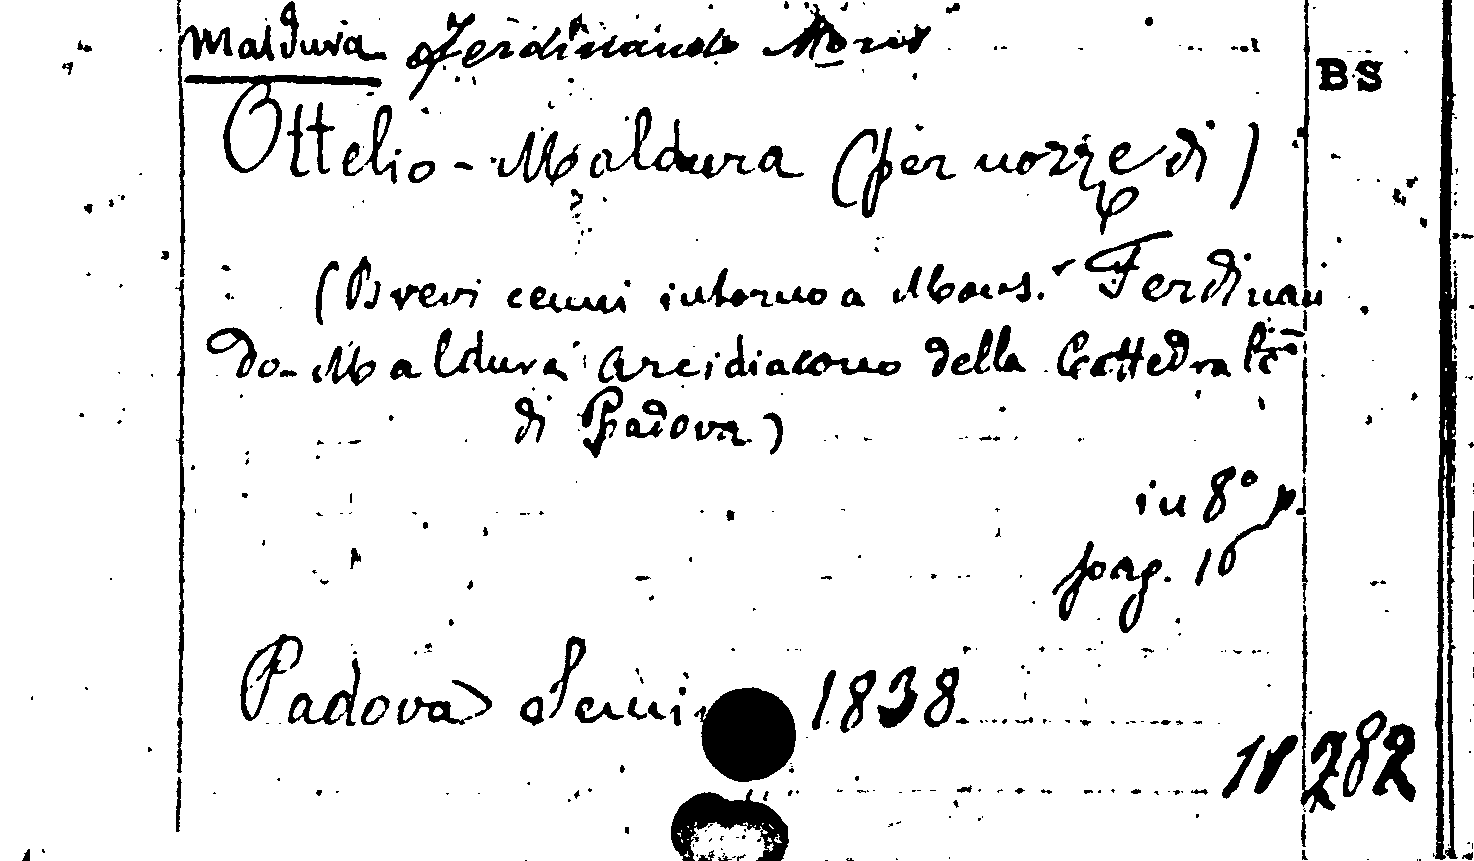 Maldura Ferdinando Mons.r
BS
Ottelio - Maldura (per nozze di)
(Brevi cenni intorno a Mons.r Ferdinan
do Maldura arcidiacono della Cattedrale
di Padova)
in 8° p.
pag. 16
Padova Semin 1838
18282